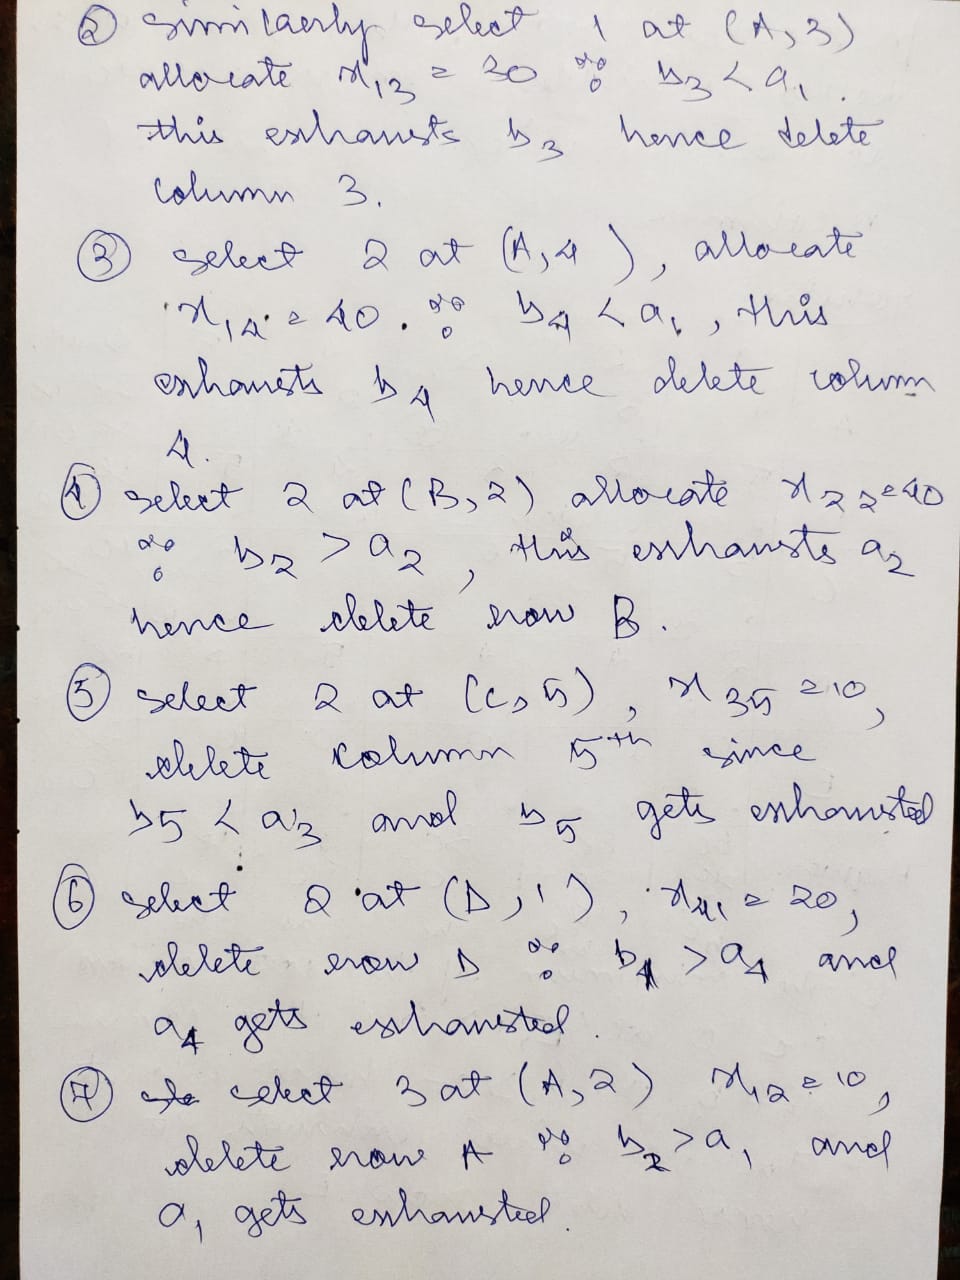 ② Similarly select 1 at (A,3)
allocate x₁₃ = 30 ∵ b₃ < a₁.
this exhausts b₃ hence delete
column 3.
③ select 2 at (A,4), allocate
x₁₄ = 40. ∵ b₄ < a₁, this
exhausts b₄ hence delete column
4.
④ select 2 at (B,2) allocate x₂₂=40
∵ b₂ > a₂, this exhausts a₂
hence delete row B.
⑤ select 2 at (C,5), x₃₅ = 10,
delete column 5th since
b₅ < a₃ and b₅ gets exhausted
⑥ select 2 at (D,1), x₄₁ = 20,
delete row D ∵ b₁ > a₄ and
a₄ gets exhausted.
⑦ select 3 at (A,2) x₁₂ = 10,
delete row A ∵ b₂ > a₁ and
a₁ gets exhausted.